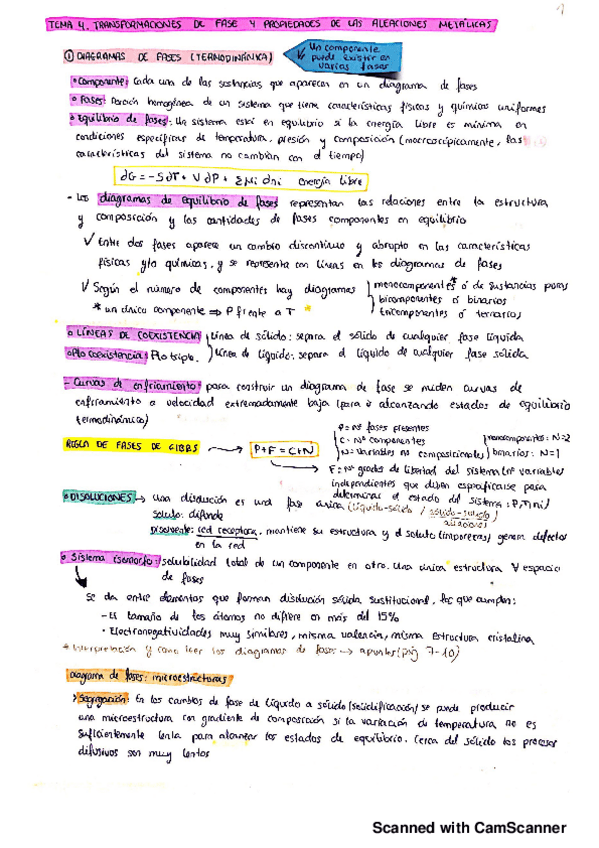 1
TEMA 4. TRANSFORMACIONES DE FASE Y PROPIEDADES DE LAS ALEACIONES METÁLICAS
① DIAGRAMAS DE FASES (TERMODINÁMICA)
Un componente
puede existir en
varias fases
Componente: Cada una de las sustancias que aparecen en un diagrama de fases
Fases: Porción homogénea de un sistema que tiene características físicas y químicas uniformes
Equilibrio de fases: Un sistema está en equilibrio si la energía libre es mínima en
condiciones específicas de temperatura, presión y composición (macroscópicamente, las
características del sistema no cambian con el tiempo)
∂G = -S∂T + V∂P + Σμi ∂ni energía libre
- Los diagramas de equilibrio de fases representan las relaciones entre la estructura
y composición y las cantidades de fases componentes en equilibrio
√ Entre dos fases aparece un cambio discontinuo y abrupto en las características
físicas y/o químicas, y se representa con líneas en los diagramas de fases
√ Según el número de componentes hay diagramas
monocomponentes* ó de sustancias puras
bicomponentes ó binarios
tricomponentes ó ternarios
* un único componente ⇒ P frente a T *
LÍNEAS DE COEXISTENCIA
Línea de sólido: separa el sólido de cualquier fase líquida
Pto coexistencia: Pto triple.
Línea de líquido: separa el líquido de cualquier fase sólida
- Curvas de enfriamiento: para construir un diagrama de fase se miden curvas de
enfriamiento a velocidad extremadamente baja (para ir alcanzando estados de equilibrio
termodinámico)
REGLA DE FASES DE GIBBS → P+F = C+N
P = Nº fases presentes
C = Nº componentes
N = Variables no composicionales
monocomponentes: N=2
binarios: N=1
F = Nº grados de libertad del sistema (nº variables
independientes que deben especificarse para
determinar el estado del sistema: P,T,ni)
DISOLUCIONES → Una disolución es una fase única (líquido-sólido / sólido-sólido)
aleaciones
Soluto: difunde
Disolvente: red receptora, mantiene su estructura y el soluto (impurezas) genera defectos
en la red
Sistema isomorfo: solubilidad total de un componente en otro. Una única estructura ∀ espacio
de fases
Se da entre elementos que forman disolución sólida sustitucional, los que cumplen:
- El tamaño de los átomos no difiere en más del 15%
- Electronegatividades muy similares, misma valencia, misma estructura cristalina
* Interpretación y como leer los diagramas de fases → apuntes (pág 7-10)
Diagrama de fases: microestructuras
> Segregación: En los cambios de fase de líquido a sólido/solidificación/ se puede producir
una microestructura con gradiente de composición si la variación de temperatura no es
suficientemente lenta para alcanzar los estados de equilibrio. Cerca del sólido los procesos
difusivos son muy lentos
Scanned with CamScanner